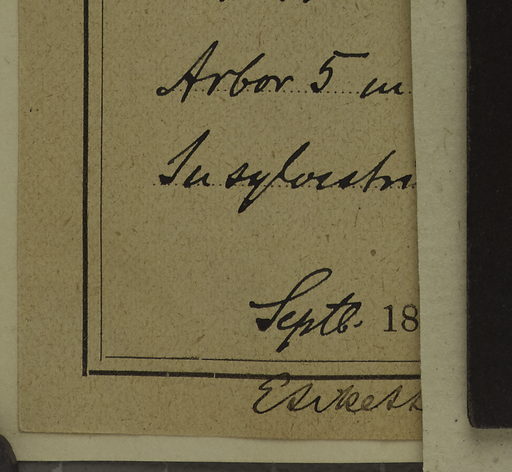 Arbor 5 m
In sylvestri
Septb. 18